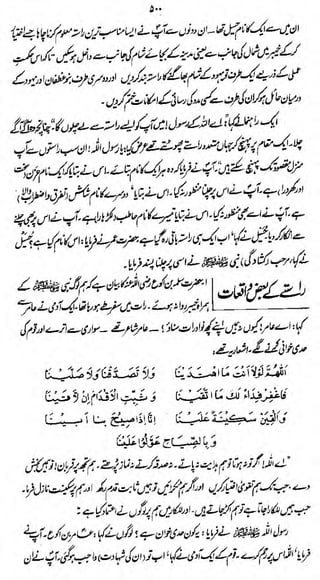 ۵۰۰
ان میں سے ایک کا نام حسیل تھا۔ ان دونوں سے آپ نے ایسا مناسب ترین راستہ معلوم کرنا چاہا جسے اختیار
کر کے خیبر میں شمال کی جانب سے یعنی مدینہ کے بجائے شام کی جانب سے داخل ہو سکیں تا کہ اس حکمت
عملی کے ذریعے ایک طرف تو یہود کے شام بھاگنے کا راستہ بند کر دیں اور دوسری طرف بنو غطفان اور یہود کے
درمیان حائل ہو کر ان کی طرف سے کسی مدد کی رسائی کے امکانات ختم کر دیں۔
ایک راہنما نے کہا: "اے اللہ کے رسول! میں آپ کو ایسے راستے سے لے چلوں گا" چنانچہ وہ آگے آگے
چلا۔ ایک مقام پر پہنچ کر جہاں متعدد راستے پھوٹتے تھے عرض کیا، یا رسول اللہ! ان سب راستوں سے آپ
منزل مقصود تک پہنچ سکتے ہیں۔ آپ نے فرمایا کہ وہ ہر ایک کا نام بتائے۔ اس نے بتایا کہ ایک نام حزن (سخت
اور کھردرا) ہے۔ آپ نے اس پر چلنا منظور نہ کیا۔ اس نے بتایا، "دوسرے کا نام شاش (تفرق و اضطراب والا)
ہے۔ آپ نے اسے بھی منظور نہ کیا۔ اس نے بتایا تیسرے کا نام حاطب (لکڑہارا) ہے۔ آپ نے اس پر بھی چلنے
سے انکار کر دیا۔ حسیل نے کہا، اب ایک ہی راستہ باقی رہ گیا ہے۔ حضرت عمر نے فرمایا: اس کا نام کیا ہے؟ حسیل
نے کہا، مرحب (کشادگی) نبی ﷺ نے اسی پر چلنا پسند فرمایا۔
راستے کے بعض واقعات
① حضرت سلمہ بن اکوع رضی اللہ عنہ کا بیان ہے کہ ہم لوگ نبی ﷺ کے
ہمراہ خیبر روانہ ہوئے۔ رات میں سفر طے ہو رہا تھا۔ ایک آدمی نے عامر
سے کہا: اے عامر! کیوں نہ ہمیں اپنے کچھ نوادرات سناؤ؟ — عامر شاعر تھے — سواری سے اترے اور قوم کی
حدی خوانی کرنے لگے۔ اشعار یہ تھے:
اَللّٰهُمَّ لَوْلَا اَنْتَ مَا اهْتَدَيْنَا وَلَا تَصَدَّقْنَا وَلَا صَلَّيْنَا
فَاغْفِرْ فِدَاءً لَكَ مَا اتَّقَيْنَا وَثَبِّتِ الْاَقْدَامَ اِنْ لَاقَيْنَا
وَاَلْقِيَنْ سَكِيْنَةً عَلَيْنَا اِنَّا اِذَا صِيْحَ بِنَا اَبَيْنَا
وَبِالصِّيَاحِ عَوَّلُوْا عَلَيْنَا
"اے اللہ! اگر تو نہ ہوتا تو ہم ہدایت نہ پاتے۔ نہ صدقہ کرتے نہ نماز پڑھتے۔ ہم تجھ پر قربان! تو ہمیں بخش
دے، جب تک ہم تقویٰ اختیار کریں اور اگر ہم ٹکرائیں تو ہمیں ثابت قدم رکھ اور ہم پر سکینت نازل فرما۔
جب ہمیں للکارا جاتا ہے تو ہم اکڑ جاتے ہیں۔ اور للکار میں ہم پر لوگوں نے اعتماد کیا ہے۔"
رسول اللہ ﷺ نے فرمایا: یہ کون حدی خوان ہے؟ لوگوں نے کہا: عامر بن اکوع۔ آپ نے
فرمایا، اللہ اس پر رحم کرے۔ قوم کے ایک آدمی نے کہا: اب تو (ان کی شہادت) واجب ہو گئی۔ آپ نے ان